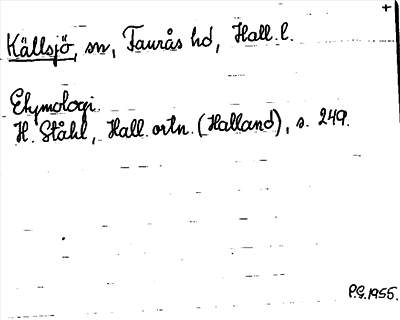 +
Källsjö, sn, Faurås hd, Hall. l.
Etymologi.
H. Ståhl, Hall. ortn. (Halland), s. 249.
P.G. 1955.